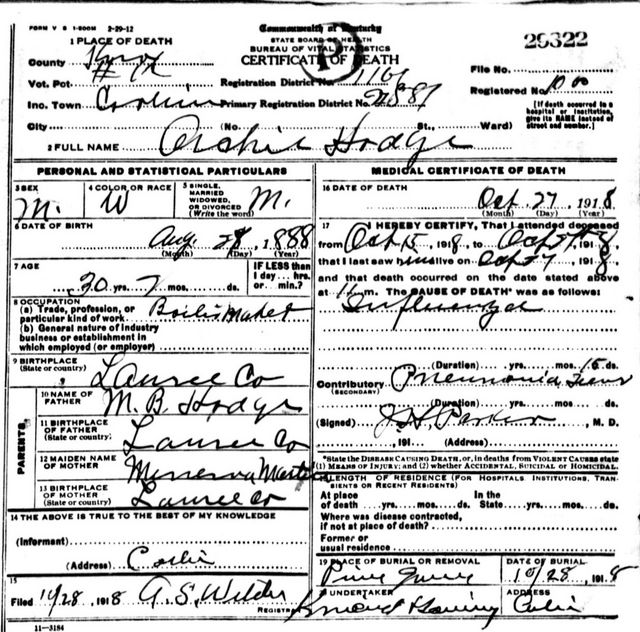 FORM V S 1-500M 2-29-12
Commonwealth of Kentucky
STATE BOARD OF HEALTH
BUREAU OF VITAL STATISTICS
CERTIFICATE OF DEATH
29322
1 PLACE OF DEATH
County Knox
Vot. Pct
Inc. Town Corbin
City (No. St., Ward)
Registration District No.
Primary Registration District No.
File No.
Registered No.
[If death occurred in a hospital or institution, give its NAME instead of street and number.]
2 FULL NAME Archie Hodge
PERSONAL AND STATISTICAL PARTICULARS
3 SEX M.
4 COLOR OR RACE W
5 SINGLE, MARRIED WIDOWED, OR DIVORCED (Write the word) M.
6 DATE OF BIRTH
Aug. 28, 1888
(Month) (Day) (Year)
7 AGE
30 yrs. 2 mos. ds.
IF LESS than 1 day... hrs. or min.?
8 OCCUPATION
(a) Trade, profession, or particular kind of work Boiler Maker
(b) General nature of industry
business or establishment in
which employed (or employer)
9 BIRTHPLACE
(State or country) Laurel Co
PARENTS
10 NAME OF FATHER M. B. Hodge
11 BIRTHPLACE OF FATHER (State or country) Laurel Co
12 MAIDEN NAME OF MOTHER Minerva
13 BIRTHPLACE OF MOTHER (State or country) Laurel Co
14 THE ABOVE IS TRUE TO THE BEST OF MY KNOWLEDGE
(Informant)
(Address) Corbin
15
Filed 10/28, 1918 A. S. Wilder
REGISTRAR
11-3184
MEDICAL CERTIFICATE OF DEATH
16 DATE OF DEATH
Oct. 27, 1918
(Month) (Day) (Year)
17 I HEREBY CERTIFY, That I attended deceased
from Oct 15, 1918, to Oct 27, 1918,
that I last saw him alive on Oct 27, 1918,
and that death occurred on the date stated above
at m. The CAUSE OF DEATH* was as follows:
Influenza
(Duration) yrs. mos. 15 ds.
Contributory Pneumonia
(SECONDARY)
(Duration) yrs. mos. ds.
(Signed) J H Parker, M. D.
, 191 (Address)
*State the DISEASE CAUSING DEATH, or, in deaths from VIOLENT CAUSES state
(1) MEANS OF INJURY; and (2) whether ACCIDENTAL, SUICIDAL or HOMICIDAL.
LENGTH OF RESIDENCE (FOR HOSPITALS, INSTITUTIONS, TRANSIENTS OR RECENT RESIDENTS)
At place of death yrs. mos. ds. In the State yrs. mos. ds.
Where was disease contracted,
if not at place of death?
Former or
usual residence
19 PLACE OF BURIAL OR REMOVAL
Pine Grove
DATE OF BURIAL
10/28, 1918
UNDERTAKER
ADDRESS
Corbin